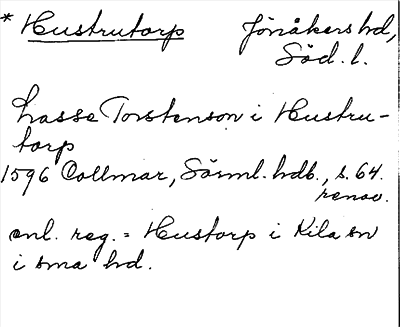 * Hustrutorp Jönåkers hd,
Söd. l.
Lasse Torstenson i Hustru-
torp
1596 Collmar, Sörml. hdb., s. 64.
renov.
enl. reg. = Hustorp i Kila sn
i sma hd.